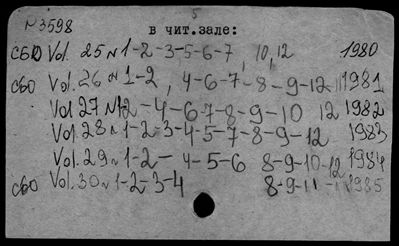 N3598
в чит. зале:
СБО Vol. 25 N 1-2-3-5-6-7, 10,12 1980
СБО Vol. 26 N 1-2, 4-6-7-8-9-12 1981
Vol 27 N12-4-6-7-8-9-10 12 1982
Vol. 28 N 1-2-3-4-5-7-8-9-12 1983
Vol. 29 N 1-2-4-5-6 8-9-10-12 1984
СБО Vol. 30 N 1-2-3-4 8-9-11- 1985